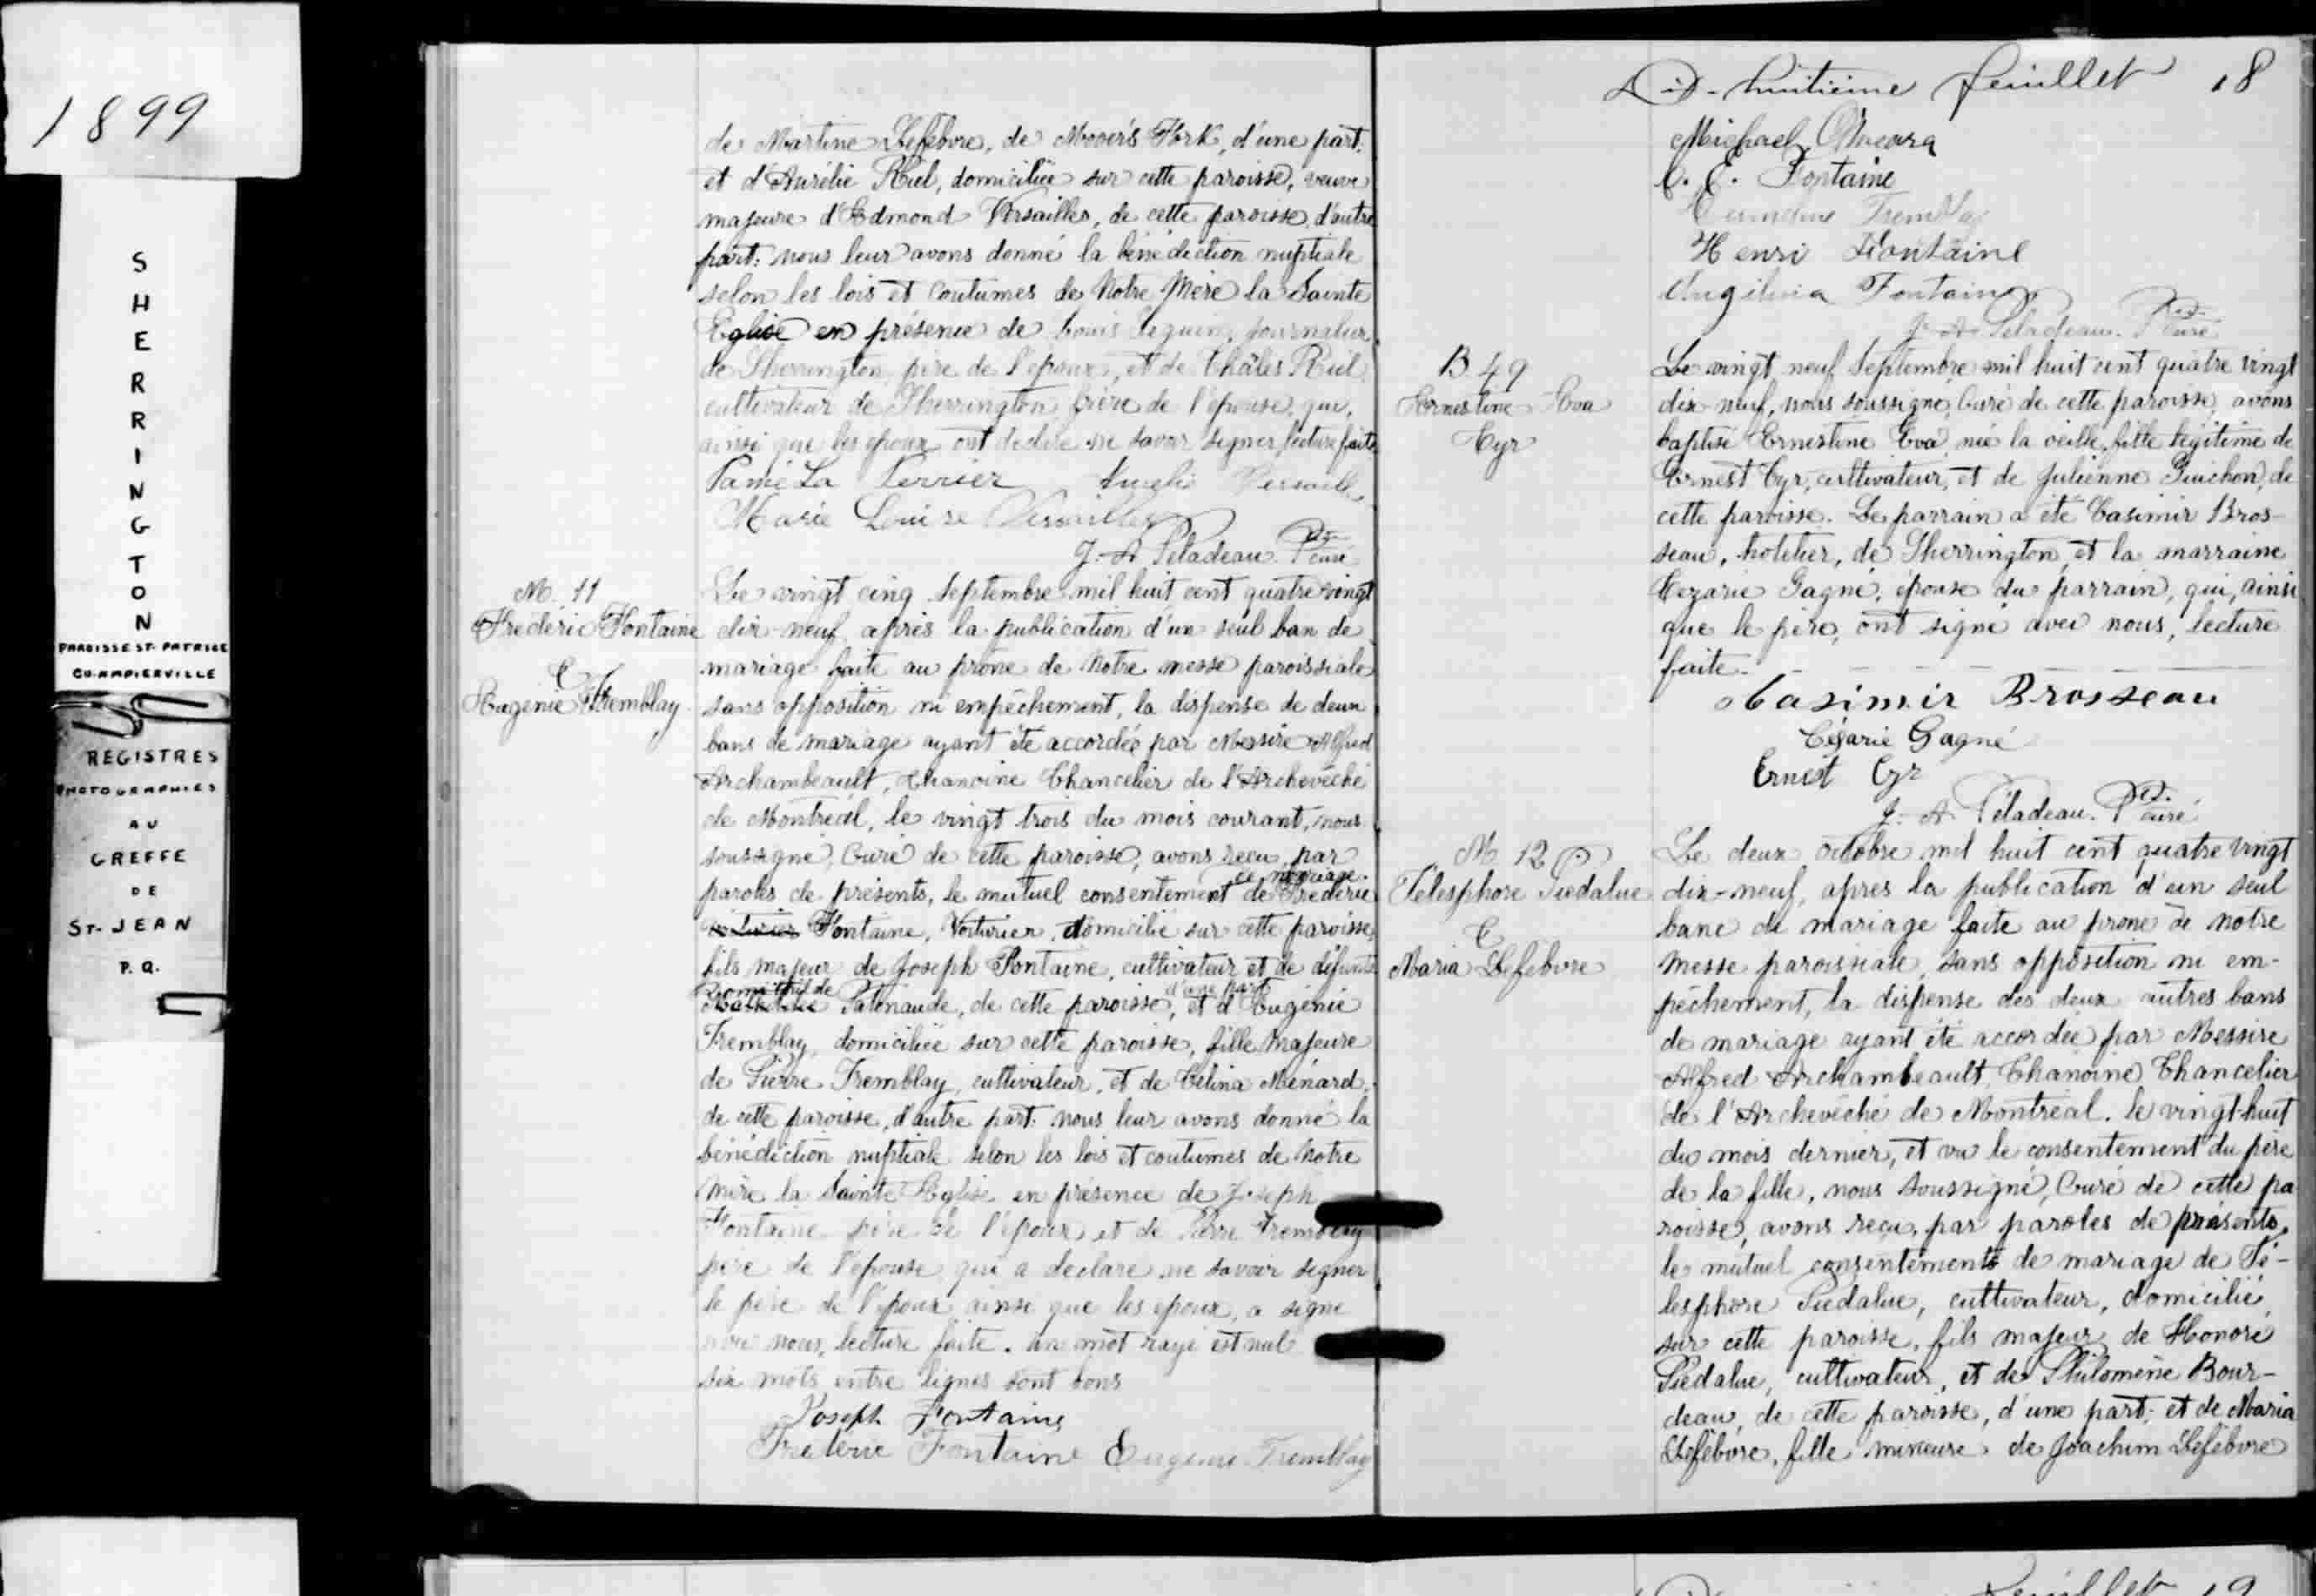 1899
SHERRINGTON
PAROISSE ST-PATRICE
REGISTRES
PHOTOGRAPHIES
AU
GREFFE
DE
ST-JEAN
P.Q.
de Martine Lefebvre, de Mooer's Fork, d'une part;
et d'Aurélie Riel, domiciliée sur cette paroisse, veuve
majeure d'Edmond Versailles, de cette paroisse, d'autre
part: nous leur avons donné la bénédiction nuptiale
selon les lois et coutumes de Notre Mère la Sainte
Eglise en présence de Louis journalier
de Sherrington, père de l'époux, et de Châles Riel
cultivateur de Sherrington, frère de l'épouse, qui,
ainsi que les époux ont déclaré ne savoir signer, lecture faite.
Paméla Perrier
Marie Louise Versailles
J. A. Péladeau. Ptre curé
M. 11
Fréderic Fontaine
&
Eugénie Tremblay
Le vingt cinq Septembre mil huit cent quatre vingt
dix-neuf, après la publication d'un seul ban de
mariage faite au prône de Notre messe paroissiale
sans opposition ni empêchement, la dispense de deux
bans de mariage ayant été accordée par Messire Alfred
Archambeault, Chanoine Chancelier de l'Archevêché
de Montréal, le vingt trois du mois courant, nous
soussigné, Curé de cette paroisse, avons reçu, par
de mariage
paroles de présents, le mutuel consentement de Fréderic
voiturier Fontaine, Voiturier, domicilié sur cette paroisse,
fils majeur de Joseph Fontaine, cultivateur et de défunte
d'une part
Patenaude, de cette paroisse, et d'Eugénie
Tremblay, domiciliée sur cette paroisse, fille majeure
de Pierre Tremblay, cultivateur, et de Célina Ménard,
de cette paroisse, d'autre part: nous leur avons donné la
bénédiction nuptiale selon les lois et coutumes de Notre
Mère la Sainte Eglise en présence de Joseph
Fontaine père de l'époux et de Pierre Tremblay
père de l'épouse qui a déclaré ne savoir signer
le père de l'époux ainsi que les époux, a signé
avec nous, lecture faite. un mot rayé est nul
six mots entre lignes sont bons
Joseph Fontaine
Frederic Fontaine Eugenie Tremblay
Dix-huitième feuillet 18
Michael O'meara
E. Fontaine
Tremblay
Henri Fontaine
Fontaine
J. A. Péladeau. Ptre curé
B. 49
Ernestine Eva
Cyr
Le vingt neuf Septembre mil huit cent quatre vingt
dix-neuf, nous soussigné, Curé de cette paroisse, avons
baptisé Ernestine Eva, née la veille, fille légitime de
Ernest Cyr, cultivateur, et de Julienne Guichon, de
cette paroisse. Le parrain a été Casimir Bros-
seau, hôtelier, de Sherrington, et la marraine
Cezarie Gagné, épouse du parrain, qui, ainsi
que le père, ont signé avec nous, lecture
faite.
Casimir Brosseau
Cézarie Gagné
Ernest Cyr
J. A. Péladeau. Ptre curé
M. 12
Télesphore Piédalue
&
Maria Lefebvre
Le deux octobre mil huit cent quatre vingt
dix-neuf, après la publication d'un seul
banc de mariage faite au prône de notre
messe paroissiale, sans opposition ni em-
pêchement, la dispense des deux autres bans
de mariage ayant été accordée par Messire
Alfred Archambeault Chanoine Chancelier
de l'Archevêché de Montréal. le vingt-huit
du mois dernier, et vu le consentement du père
de la fille, nous soussigné, Curé de cette pa
roisse, avons reçu, par paroles de présents,
le mutuel consentement de mariage de Té-
lesphore Piédalue, cultivateur, domicilié
sur cette paroisse, fils majeur de Honoré
Piédalue, cultivateur, et de Philomène Bour-
deau, de cette paroisse, d'une part; et de Maria
Lefebvre, fille mineure de Joachim Lefebvre